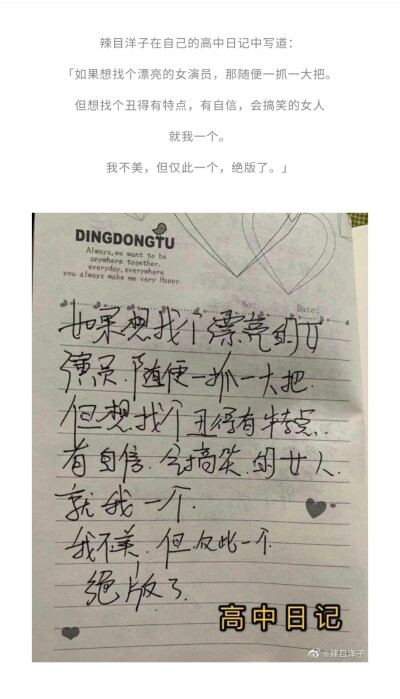 辣目洋子在自己的高中日记中写道：
「如果想找个漂亮的女演员，那随便一抓一大把。
但想找个丑得有特点，有自信，会搞笑的女人
就我一个。
我不美，但仅此一个，绝版了。」
DINGDONGTU
Always,we want to be
anywhere together.
everyday,everywhere
you always make me very Happy.
No:
Date:
如果想找个漂亮的女
演员.随便一抓一大把.
但想找个丑得有特点.
有自信.会搞笑.的女人.
就我一个.
我不美.但仅此一个.
绝版了.
高中日记
@辣目洋子